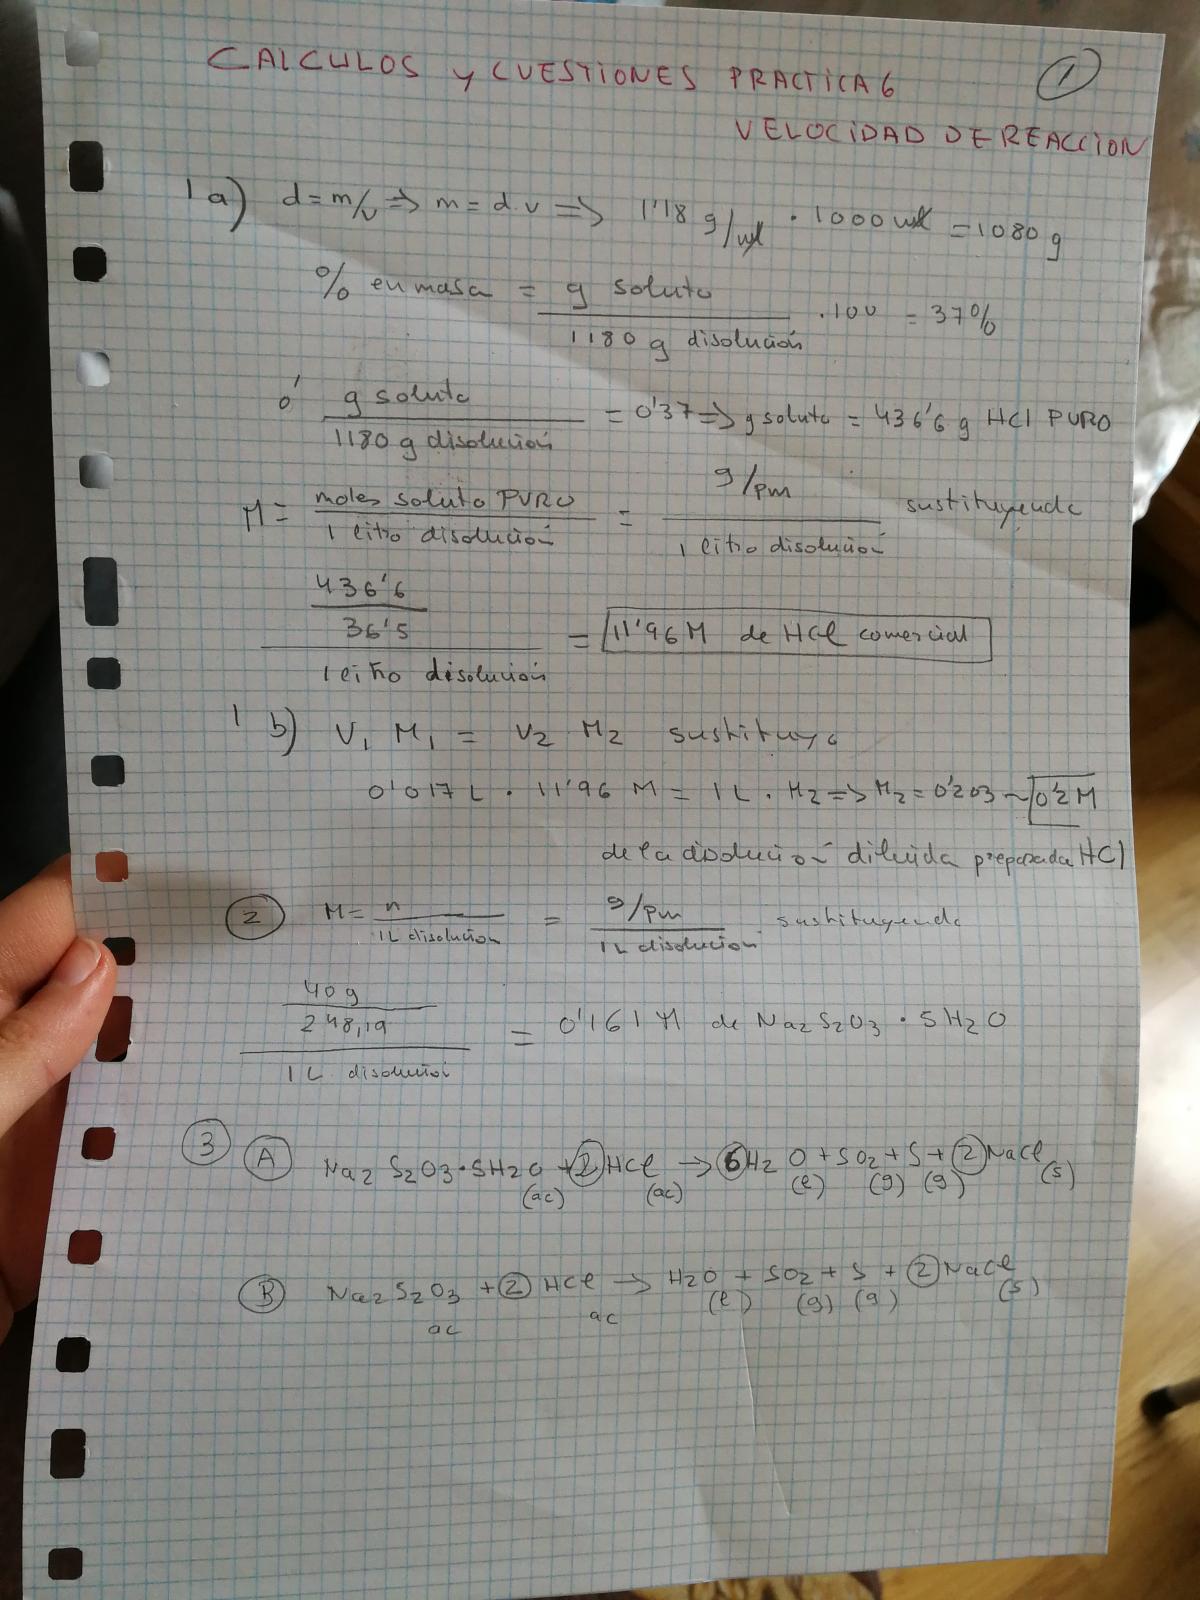 CALCULOS y CUESTIONES PRACTICA 6 1
VELOCIDAD DE REACCION
1 a) d = m/v => m = d.v => 1'18 g/ml · 1000 ml = 1080 g
% en masa = g soluto / 1180 g disolución · 100 = 37%
ó g soluto / 1180 g disolución = 0'37 => g soluto = 436'6 g HCl PURO
M = moles soluto PURO / 1 litro disolución = g/pm / 1 litro disolución sustituyendo
436'6 / 36'5 / 1 litro disolución = 11'96 M de HCl comercial
1 b) V1 M1 = V2 M2 sustituyo
0'017 L · 11'96 M = 1L · M2 => M2 = 0'203 ~ 0'2 M
de la disolución diluida preparada HCl
2 M = n / 1L disolución = g/pm / 1L disolución sustituyendo
40 g / 248,19 / 1 L disolución = 0'161 M de Na2S2O3 · 5H2O
3 A Na2 S2O3·5H2O (ac) + 2 HCl (ac) → 6 H2O (l) + SO2 (g) + S (g) + 2 NaCl (s)
B Na2S2O3 ac + 2 HCl ac → H2O (l) + SO2 (g) + S (g) + 2 NaCl (s)